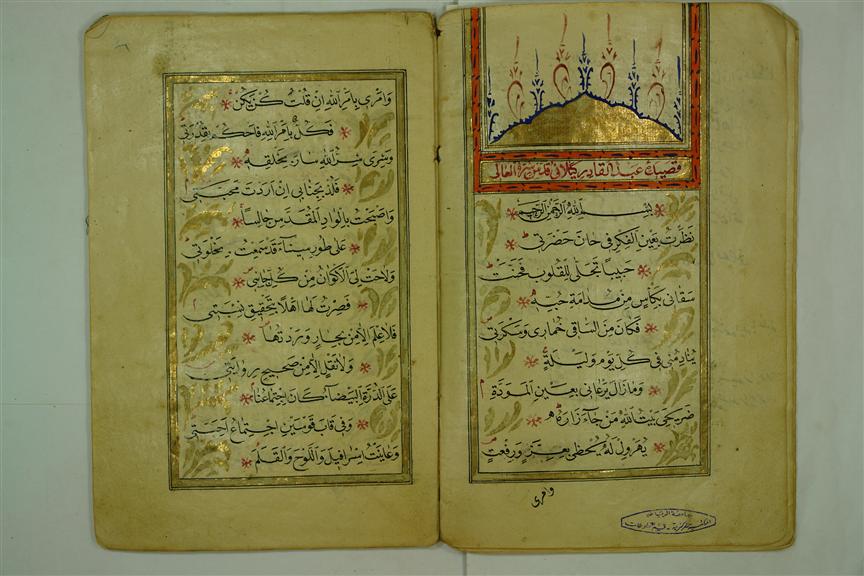 قصيدة عبد القادر كيلاني قدس سره العالي
بسم الله الرحمن الرحيم
نظرت بعين الفكر في حان حضرتي
حبيبا تجلى للقلوب فحنت
سقاني بكأس من مدامة حبه
فكان من الساقي خماري وسكرتي
ينادمني في كل يوم وليلة
وما زال يرعاني بعين المودة
ضريحي بيت الله من جاء زاره
يهرول له يحظى بعز ورفعت
وامري
جامعة الرياض
وامري بامر الله ان قلت كن يكن
فكل بامر الله فاحكم بقدرتي
وسري سر الله سار بخلقه
فلذ بجنابي ان اردت محبتي
واصبحت بالواد المقدس جالسا
على طور سيناء قد سمعت بخلوتي
ولاحت لي الاكوان من كل جانب
فصرت لها اهلا بتحقيق نسبتي
فلا علم الا من بحار وردتها
ولا نقل الا من صحيح روايتي
على الدرة البيضاء كان اجتماعنا
وفي قاب قوسين اجتماع احبتي
وعاينت اسرافيل واللوح والقلم